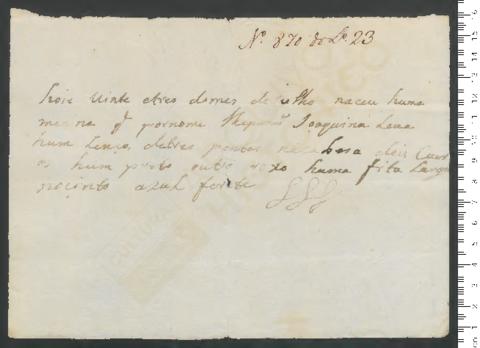 Nº 870 do Lº 23
hoie vinte etres domes de julho naceu huma
menna q̃ pornome Joaquina Leua
hum lenço detres pontos nacabesa dois Cuer
os hum preto outro roxo huma fita larga
nosinto azul ferete